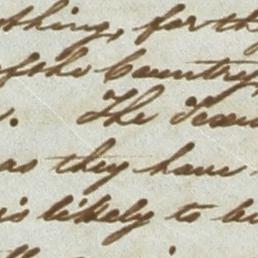 thing, for th
of the Country
. The Texas
as they have
is likely to be